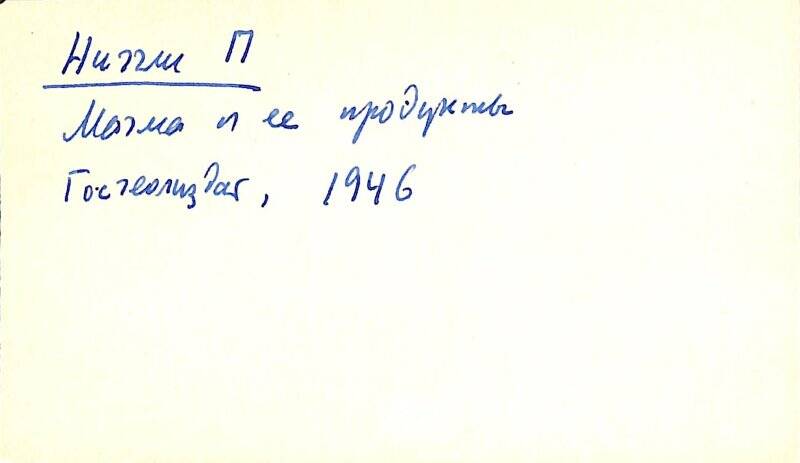 Ниггли П
Магма и ее продукты
Госгеолиздат, 1946